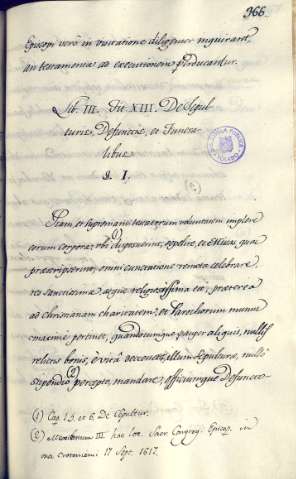 366.
Episcopi verò in visitatione diligenter inquirant,
an testamenta ad executionem perducantur.
Lib. III. Tit. XIII. De Sepul-
turis, Defunctis, et Funera-
libus
§. I.
Piam et supremam testatorum voluntatem implere
eorum corpora, ubi disposuerint, sepelire, et Missas, quas
præscripserint, omni cunctatione remota celebrare
res sanctissima æque religiosissima est; præterea
ad christianam charitatem, et Parochorum munus
maximè pertinet, quandocumque pauper aliquis, nullis
relictis bonis, è vita decesserit, illum sepulturæ, nullo
stipendio percepto, mandare, officiumque Defuncto-
1) Cap. 1. 5. et 6. De Sepultur.
2) Mexicanum III hac loc. Sacr. Congreg. Episcop. in
una 17. Sept. 1617.